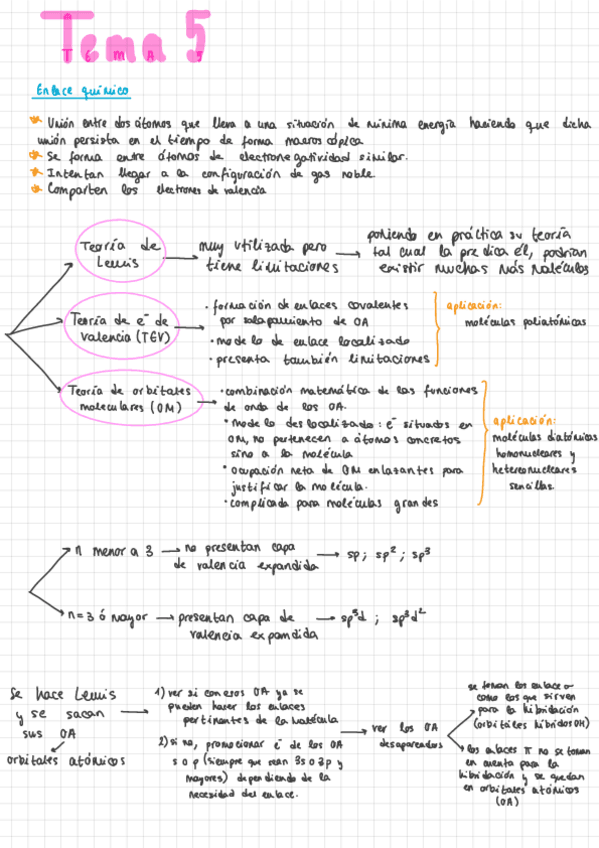 Tema 5
TEMA 5
Enlace químico
Unión entre dos átomos que lleva a una situación de mínima energía haciendo que dicha
unión persista en el tiempo de forma macroscópica
Se forma entre átomos de electronegatividad similar.
Intentan llegar a la configuración de gas noble.
Comparten los electrones de valencia
Teoría de
Lewis
muy utilizada pero
tiene limitaciones
poniendo en práctica su teoría
tal cual la predica él, podrían
existir muchas más moléculas
Teoría de e⁻ de
valencia (TGV)
· formación de enlaces covalentes
por solapamiento de OA
· modelo de enlace localizado
· presenta también limitaciones
aplicación:
moléculas poliatómicas
Teoría de orbitales
moleculares (OM)
· combinación matemática de las funciones
de onda de los OA.
· modelo deslocalizado: e⁻ situados en
OM, no pertenecen a átomos concretos
sino a la molécula
· ocupación neta de OM enlazantes para
justificar la molécula.
· complicada para moléculas grandes
aplicación:
moléculas diatómicas
homonucleares y
heteronucleares
sencillas.
n menor a 3 → no presentan capa
de valencia expandida → sp; sp²; sp³
n=3 ó mayor → presentan capa de
valencia expandida → sp³d ; sp³d²
Se hace Lewis
y se sacan
sus OA
orbitales atómicos
1) ver si con esos OA ya se
pueden hacer los enlaces
pertinentes de la molécula
2) si no, promocionar e⁻ de los OA
s o p (siempre que sean 3s o 3p y
mayores) dependiendo de la
necesidad del enlace.
ver los OA
desapareados
se toman los enlace σ
como los que sirven
para la hibridación
(orbitales híbridos OH)
los enlaces π no se toman
en cuenta para la
hibridación y se quedan
en orbitales atómicos
(OA)